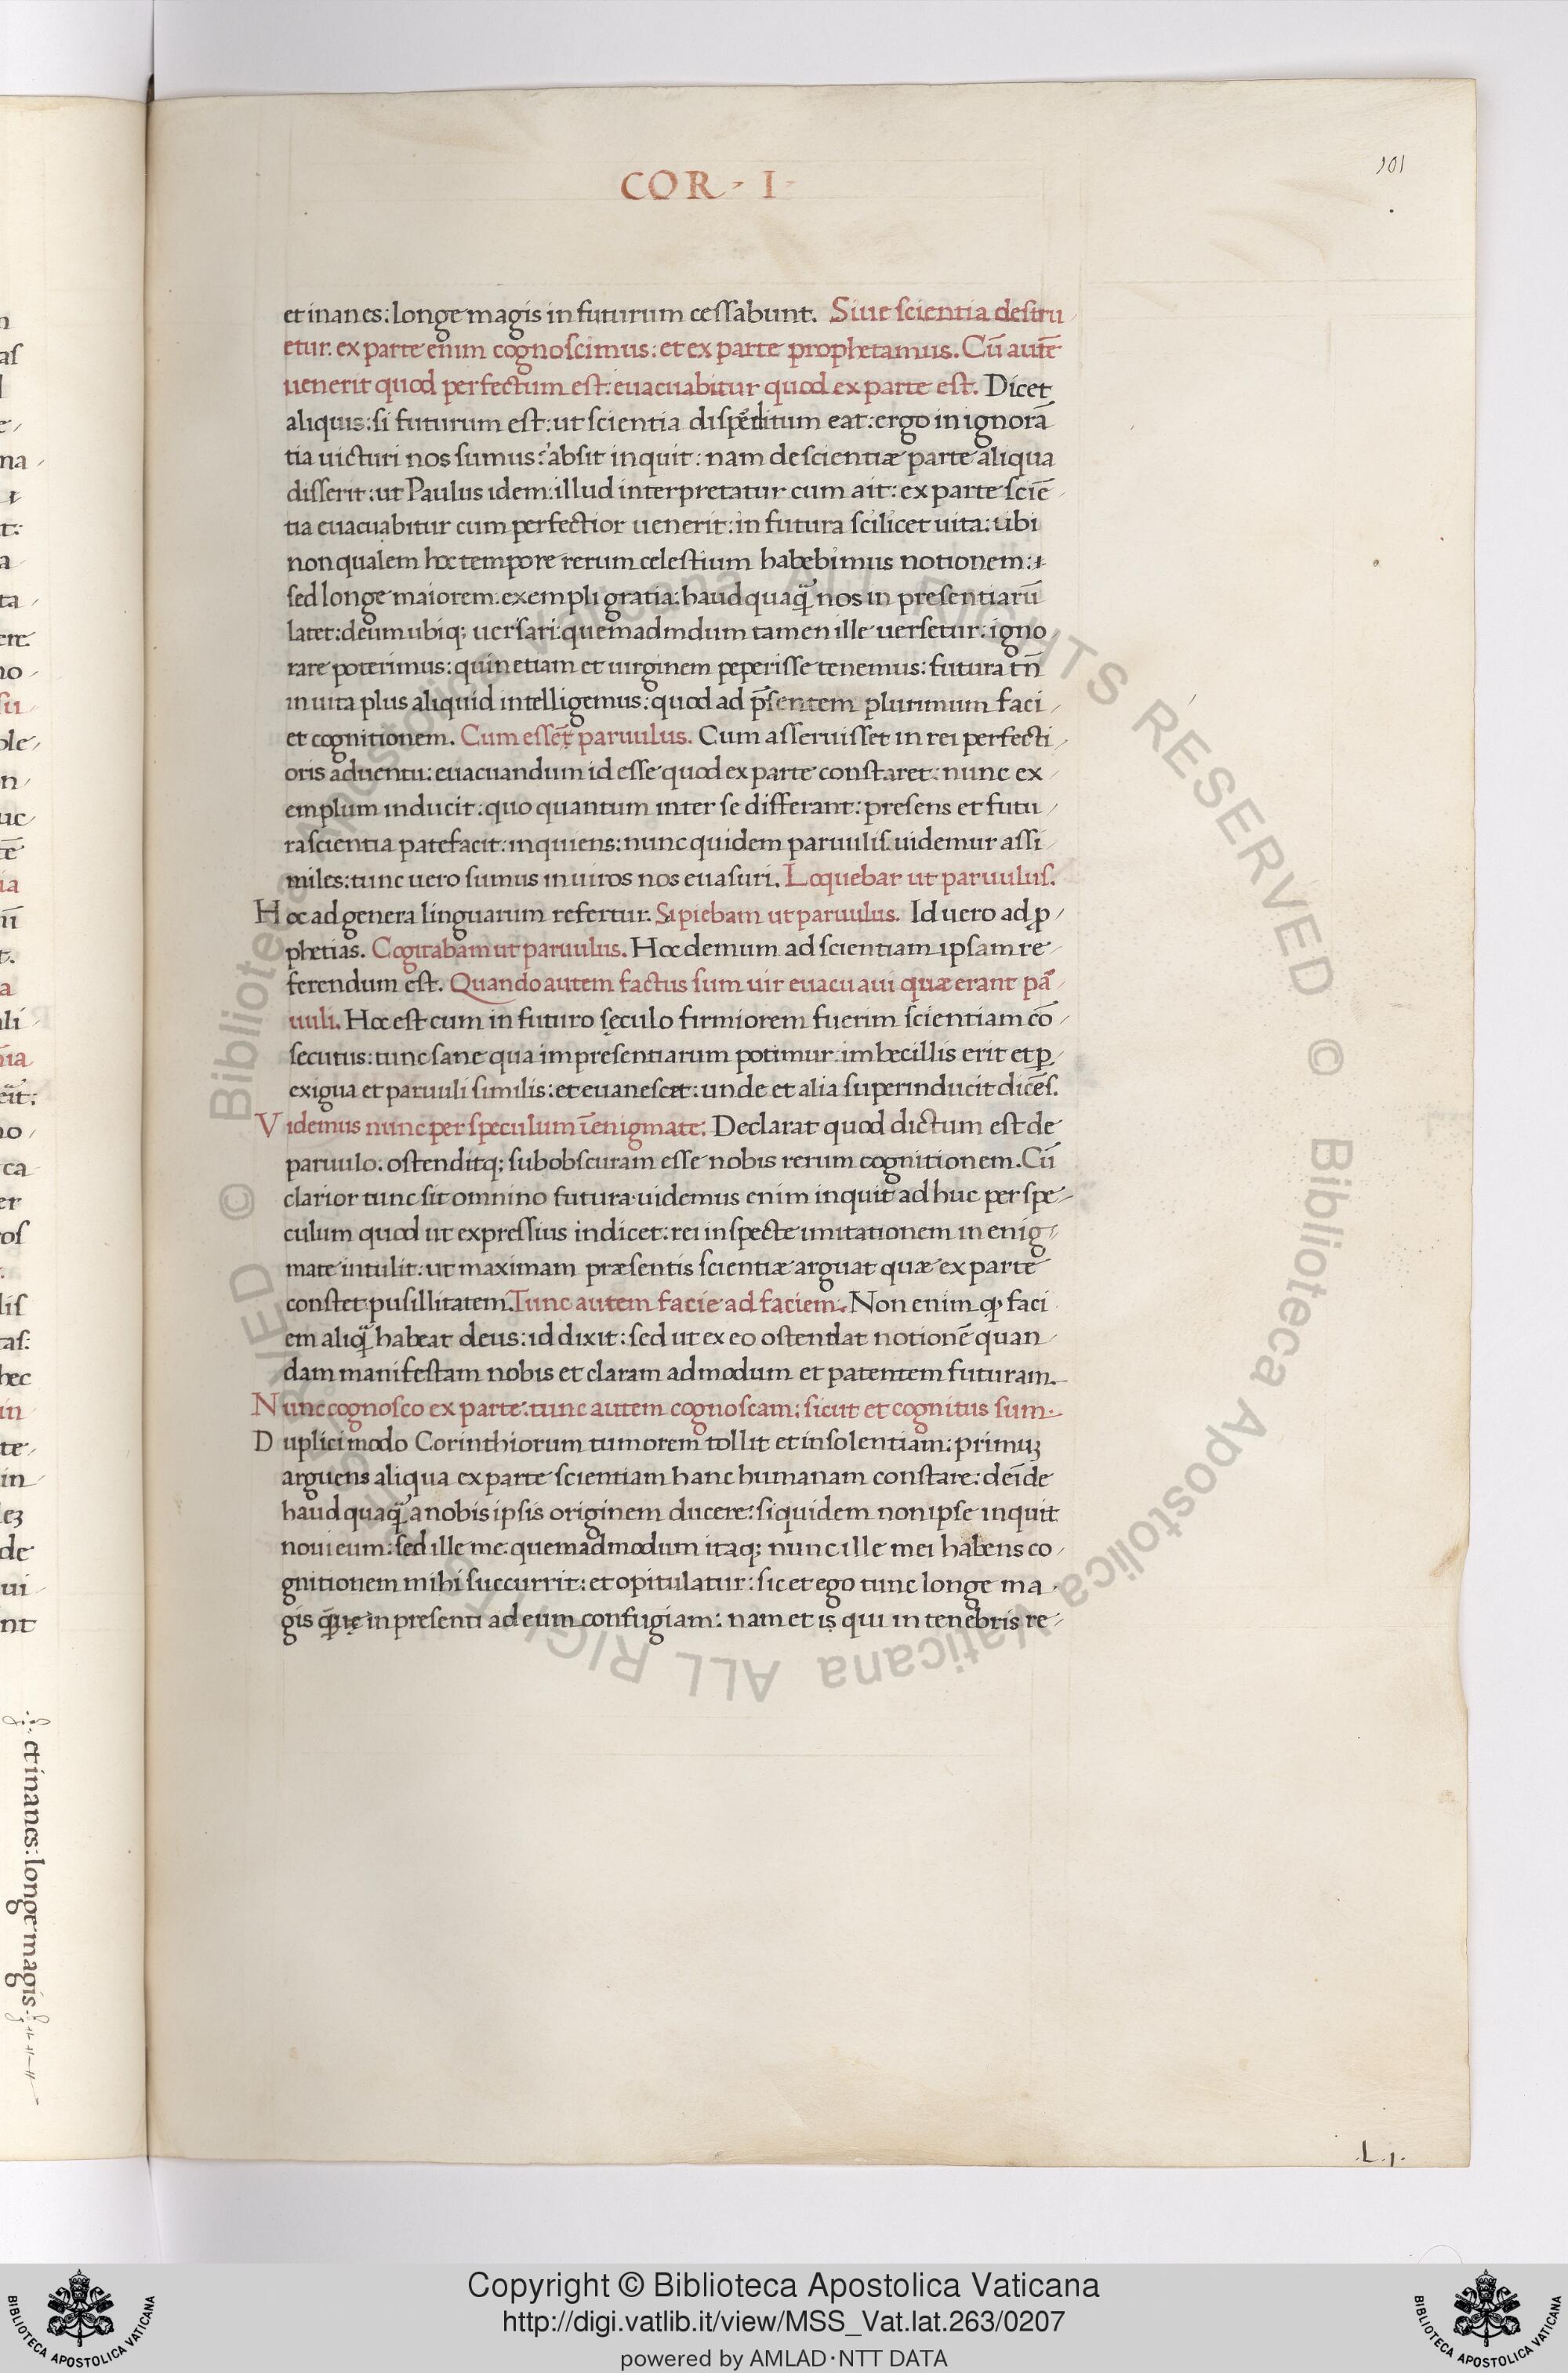 COR · I ·
101
et inanes: longe magis in futurum cessabunt. Siue scientia destru
etur. ex parte enim cognoscimus: et ex parte prophetamus. Cū autē
uenerit quod perfectum est: euacuabitur quod ex parte est. Dicet
aliquis: si futurum est: ut scientia disperditum eat: ergo in ignorā
tia uicturi nos sumus: absit inquit: nam de scientiæ parte aliqua
disserit: ut Paulus idem: illud interpretatur cum ait: ex parte sciē
tia euacuabitur cum perfectior uenerit: in futura scilicet uita: ubi
non qualem hoc tempore rerum celestium habebimus notionem:
sed longe maiorem. exempli gratia: haud quaq̄ nos in presentiarū
latet: deum ubiq; uersari: quemadmdum tamen ille uersetur: igno
rare poterimus: quin etiam et uirginem peperisse tenemus: futura tn̄
in uita plus aliquid intelligemus: quod ad p̄sentem plurimum faci
et cognitionem. Cum essēt paruulus. Cum asseruisset in rei perfecti
oris aduentu: euacuandum id esse quod ex parte constaret: nunc ex
emplum inducit: quo quantum inter se differant: presens et futu
ra scientia patefacit: inquiens: nunc quidem paruulis uidemur assi
miles: tunc uero sumus in uiros nos euasuri. Loquebar ut paruulus.
Hoc ad genera linguarum refertur. Sapiebam ut paruulus. Id uero ad ꝓ
phetias. Cogitabam ut paruulus. Hoc demum ad scientiam ipsam re
ferendum est. Quando autem factus sum uir euacuaui quæ erant pā
uuli. Hoc est cum in futuro sęculo firmiorem fuerim scientiam cō
secutus: tunc sane qua impresentiarum potimur: imbecillis erit et ꝑ
exigua et paruuli similis: et euanescet: unde et alia superinducit dicēs.
Videmus nunc per speculum ī enigmate: Declarat quod dictum est de
paruulo. ostenditq; subobscuram esse nobis rerum cognitionem. Cū
clarior tunc sit omnino futura. uidemus enim inquit adhuc per spe
culum quod ut expressius indicet: rei inspecte imitationem in enig
mate intulit: ut maximam præsentis scientiæ arguat quæ ex parte
constet pusillitatem. Tunc autem facie ad faciem. Non enim ꝙ faci
em aliq̄ habeat deus: id dixit: sed ut ex eo ostendat notionē quan
dam manifestam nobis et claram admodum et patentem futuram.
Nunc cognosco ex parte: tunc autem cognoscam: sicut et cognitus sum.
Duplici modo Corinthiorum tumorem tollit et insolentiam: primuꝫ
arguens aliqua ex parte scientiam hanc humanam constare: deīde
haud quaq̄ a nobis ipsis originem ducere: siquidem non ipse inquit
noui eum: sed ille me: quemadmodum itaq; nunc ille mei habens co
gnitionem mihi succurrit: et opitulatur: sic et ego tunc longe ma
gis in presenti ad eum confugiam: nam et is qui in tenebris re
.L.1.
et inanes: longe magis
Copyright © Biblioteca Apostolica Vaticana
http://digi.vatlib.it/view/MSS_Vat.lat.263/0207
powered by AMLAD·NTT DATA
BIBLIOTECA APOSTOLICA VATICANA
BIBLIOTECA APOSTOLICA VATICANA
© Biblioteca Apostolica Vaticana ALL RIGHTS RESERVED © Biblioteca Apostolica Vaticana ALL RIGHTS RESERVED